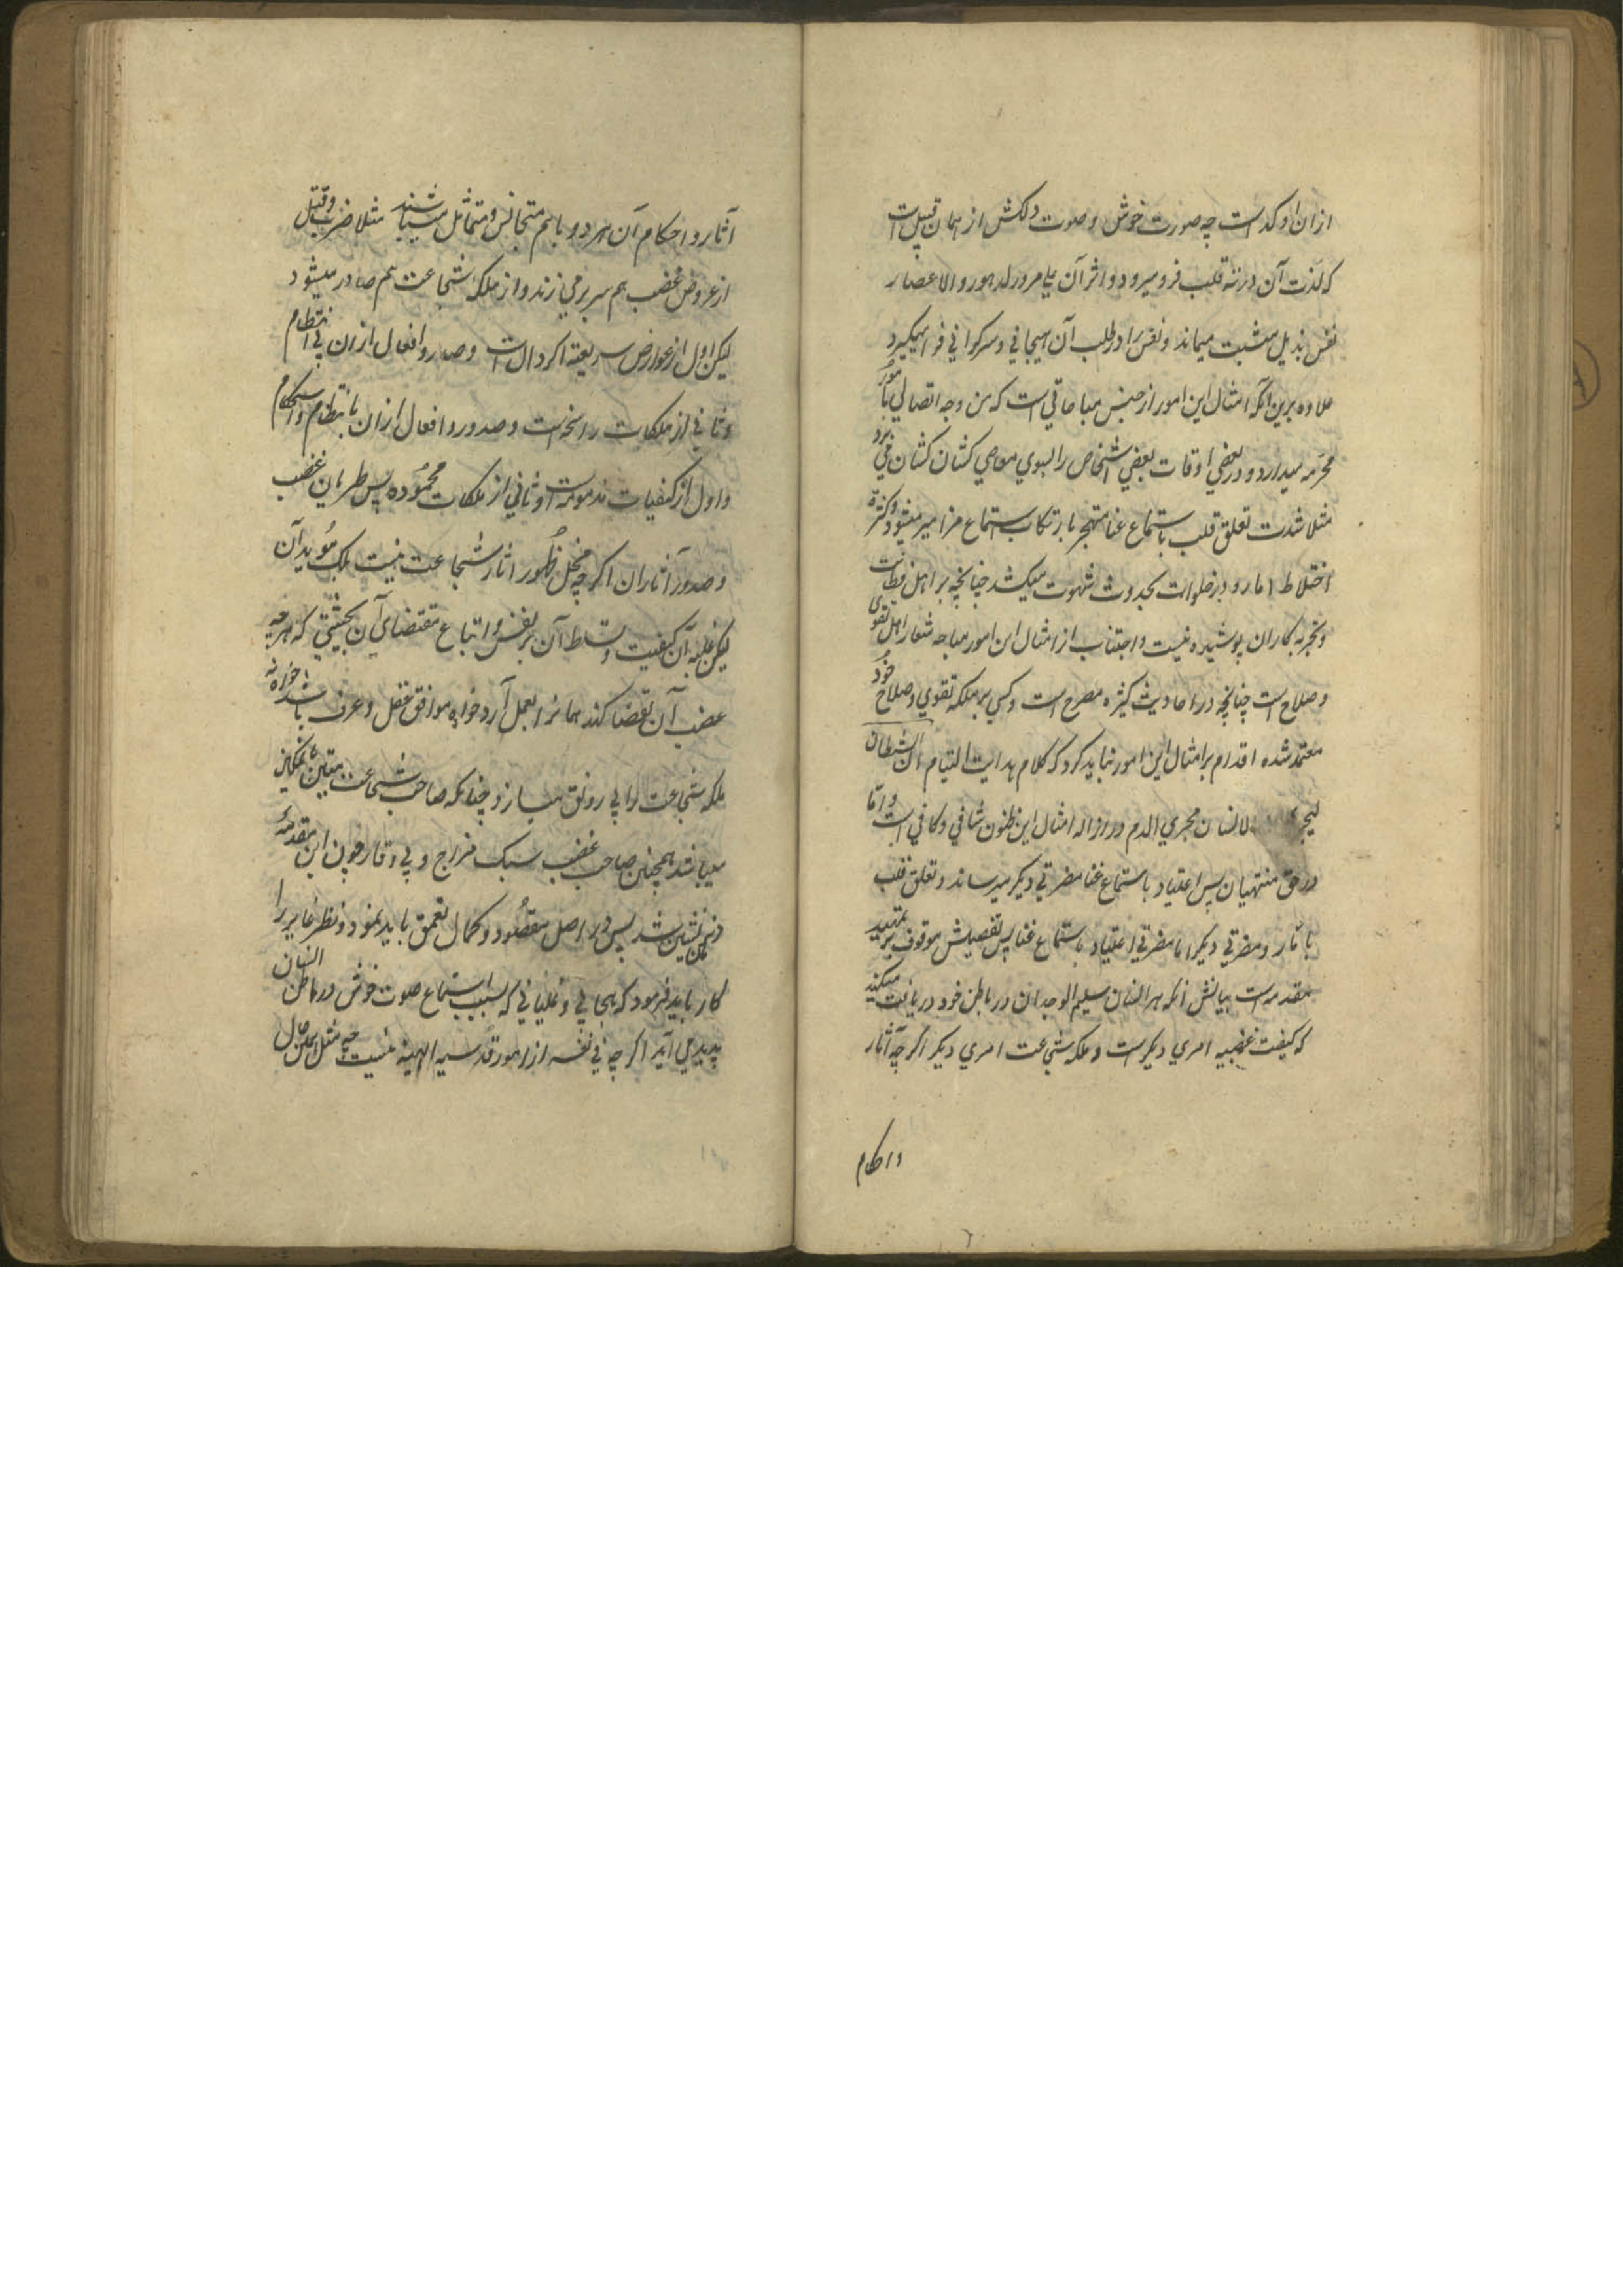 ازان اوکد است چه صورت خوش و صوت دلکش از همان قبیل است
که لذت آن در ته قلب فرو میرود و اثر آن علی مرور الدهور و الاعصار
نفس بذیل متشبث میماند و نفس را در طلب آن هیجانی و سرگرانی فرا میگیرد
علاوه برین آنکه امثال این امور از جنس مباحاتی است که من وجه اتصالی بامور
محرمه میدارد و در بعضی اوقات بعضی اشخاص را بسوی معاصی کشان کشان می برد
مثلا شدت تعلق قلب باستماع غنا منجر بارتکاب استماع مزامیر میشود و کثرة
اختلاط امارد در خلوات بحدوث شهوت میکشد چنانچه بر اهل فطانت
و تجربه کاران پوشیده نیست و اجتناب از امثال این امور مباحه شعار اهل تقوی
و صلاح است چنانچه در احادیث کثیره مصرح است و کسی بر ملکه تقوی و صلاح خود
معتمد شده اقدام بر امثال این امور نباید کرد که کلام هدایت التیام ان الشیطان
لیجری الانسان مجری الدم در ازاله امثال این ظنون شافی و کافی است و اما
در حق منتهیان پس اعتیاد باستماع غنا مضرتی دیگر میرساند و تعلق قلب
بآثار و مضرتی دیگر اما مضرتی اعتیاد باستماع غنا پس تفصیلش موقوف بر تمهید
مقدمه است بیانش آنکه هر انسان سلیم الوجدان در باطن خود دریافت میکند
که کیفت غضبیه امری دیگرست و ملکه شجاعت امری دیگر اگرچه آثار
و احکام
آثار و احکام آن هر دو باهم متجانس و متماثل میباشند مثلا ضرب و قتل
از عروض غضب هم سر بر می زند و از ملکه شجاعت هم صادر میشود
لیکن اول از عوارض سریعة الزوال است و صدور افعال ازان بی انتظام
و ثانی از ملکات راسخه است و صدور افعال ازان بانتظام و استحکام
و اول از کیفیات مذمومه است و ثانی از ملکات محموده پس طریان غضب
و صدور آثار آن اگرچه مخل ظهور آثار شجاعت نیست بلکه مُوید آن
لیکن غلبه آن کیفیت و تسلط آن بر نفس و اتباع مقتضای آن بحیثیتی که هرچه
غضب آن تقضا کند همانرا بعمل آرد خواه موافق عقل و عرف باشد خواه نه
ملکه شجاعت را بی رونق میسازد چنانکه صاحب شجاعت متین با تمکین
میباشد همچنین صاحب غضب سبک مزاج و بی وقار چون این مقدمه
ذهن نشین شد پس در اصل مقصُود و کمال تعمق باید نمود و نظر غایر را
کار باید فرمود که هیجانی و غلیانی که بسبب استماع صوت خوش در باطن انسان
پدید می آید اگرچه فی نفسه از امور قدسیه الهیه نیست چه مثل این حال